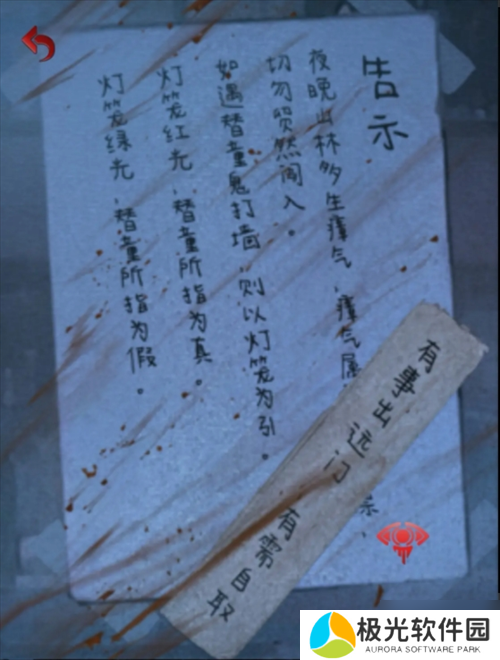 告示
夜晚山林多生瘴气，瘴气属
切勿贸然闯入。
如遇替童鬼打墙，则以灯笼为引。
灯笼红光，替童所指为真。
灯笼绿光，替童所指为假。
有事出远门
有需自取
极光软件园
AURORA SOFTWARE PARK